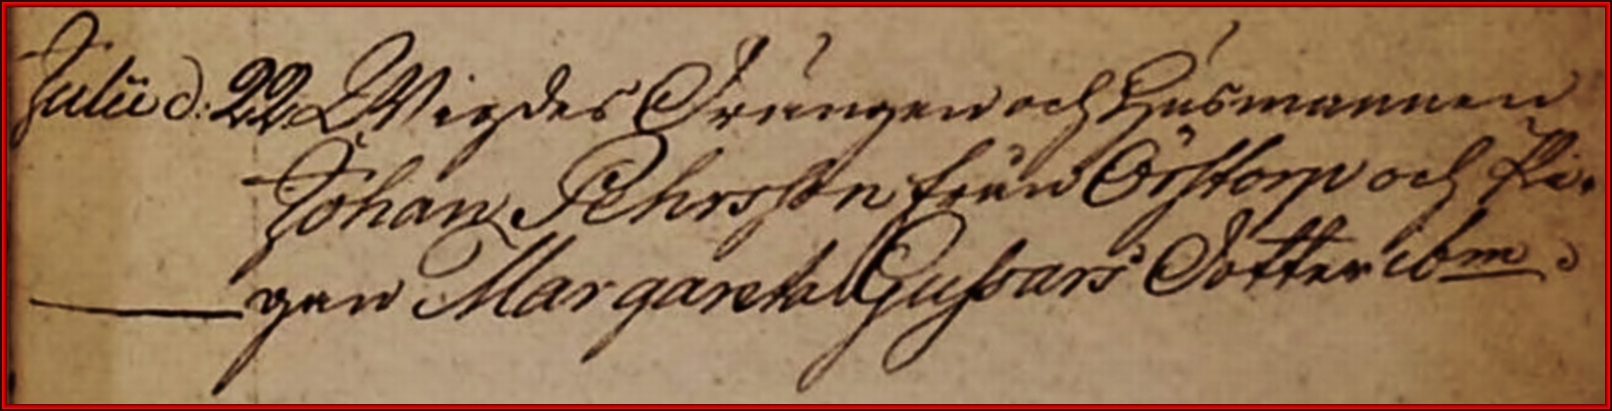 Julii d. 22 Wigdes Drängen och Husmannen
Johan Pehrsson från Östorp och Pi-
gan Margareta Gussars Dotter ibm